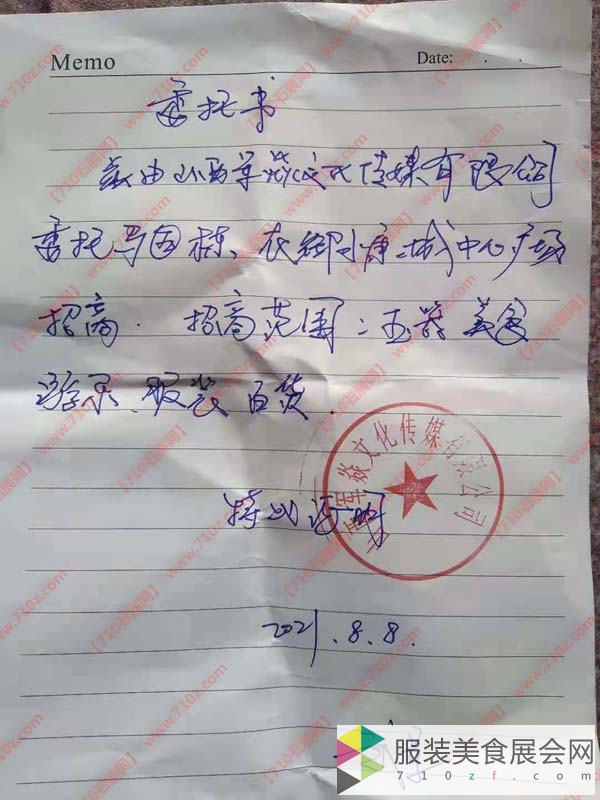 Memo
Date: . .
委托书
兹由山西军焱文化传媒有限公司
委托马国栋、在御 康 城中心广场
招商. 招商范围:玉器 美食
游乐、服装 百货.
军焱文化传媒有限公司
特此证明
2021.8.8.
服装美食展会网
710zf.com
【710石展网】
www.710z.com